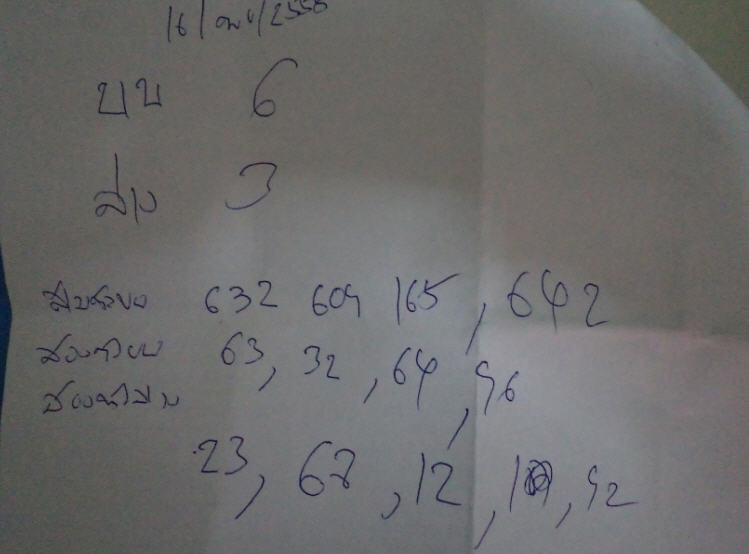 16/
บน 6
ล่าง 3
สามตัวบน 632 609 165, 642
สองตัวบน 63, 32, 64, 96
สองตัวล่าง
23, 67, 12, 92